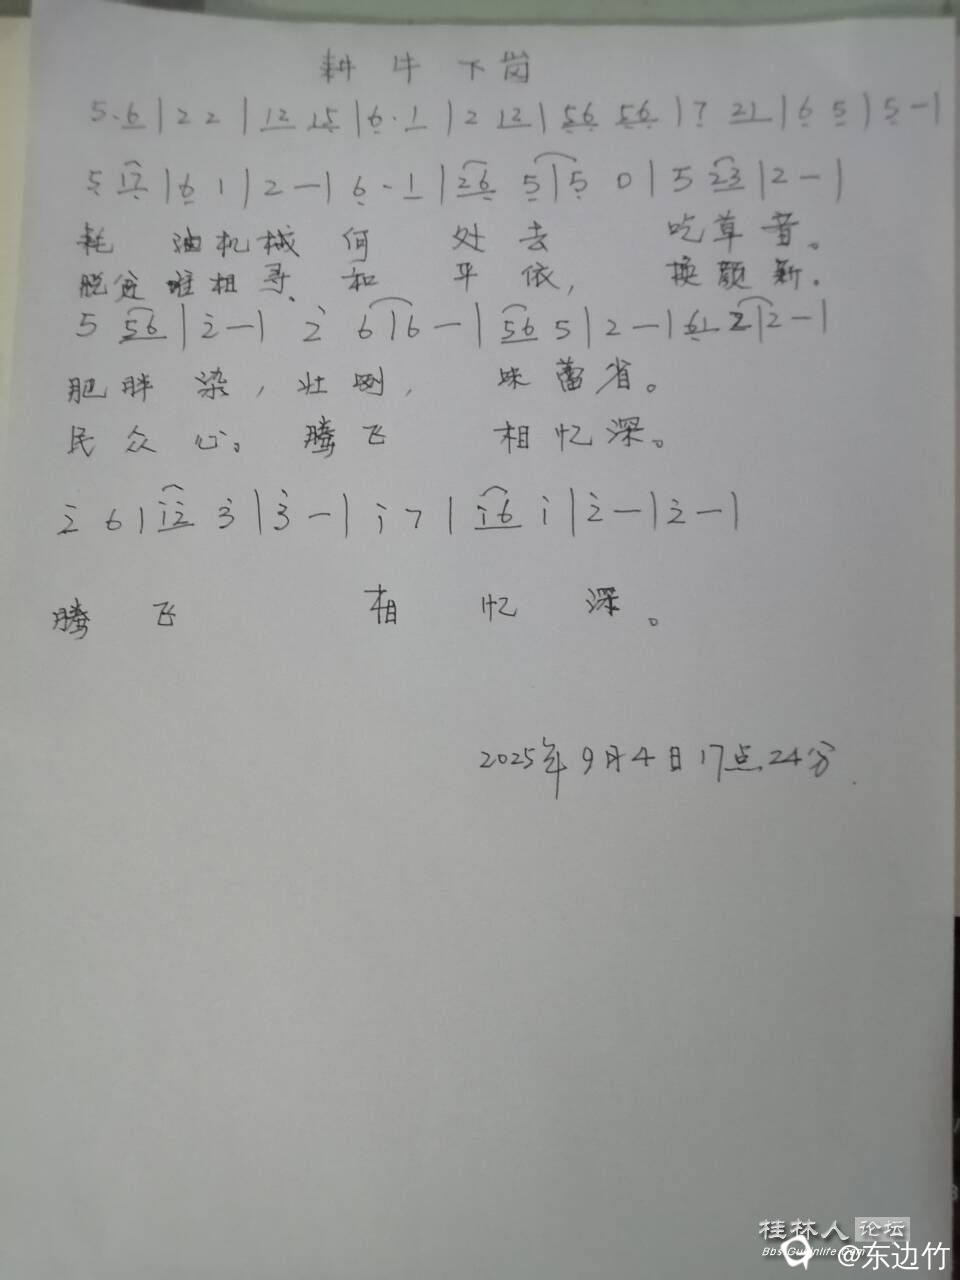 耕牛下岗
5·6|22|12 15|6·1|2 12|56 56|7 21|6 5|5-|
5 17|6 1|2-|6·1|26 5|5 0|5 23|2-|
耗油机械何处去 吃草者。
脱贫谁相寻、和平依,换颜新.
5 56|2-|2 6|6-|56 5|2-|61 2|2-|
肥胖染,壮 , 味蕾省。
民众心。腾飞 相忆深。
2 6|12 3|3-|1 7|16 1|2-|2-|
腾飞 相忆深。
2025年9月4日17点24分
桂林人论坛
Bbs.Guilinlife.Com
@东边竹